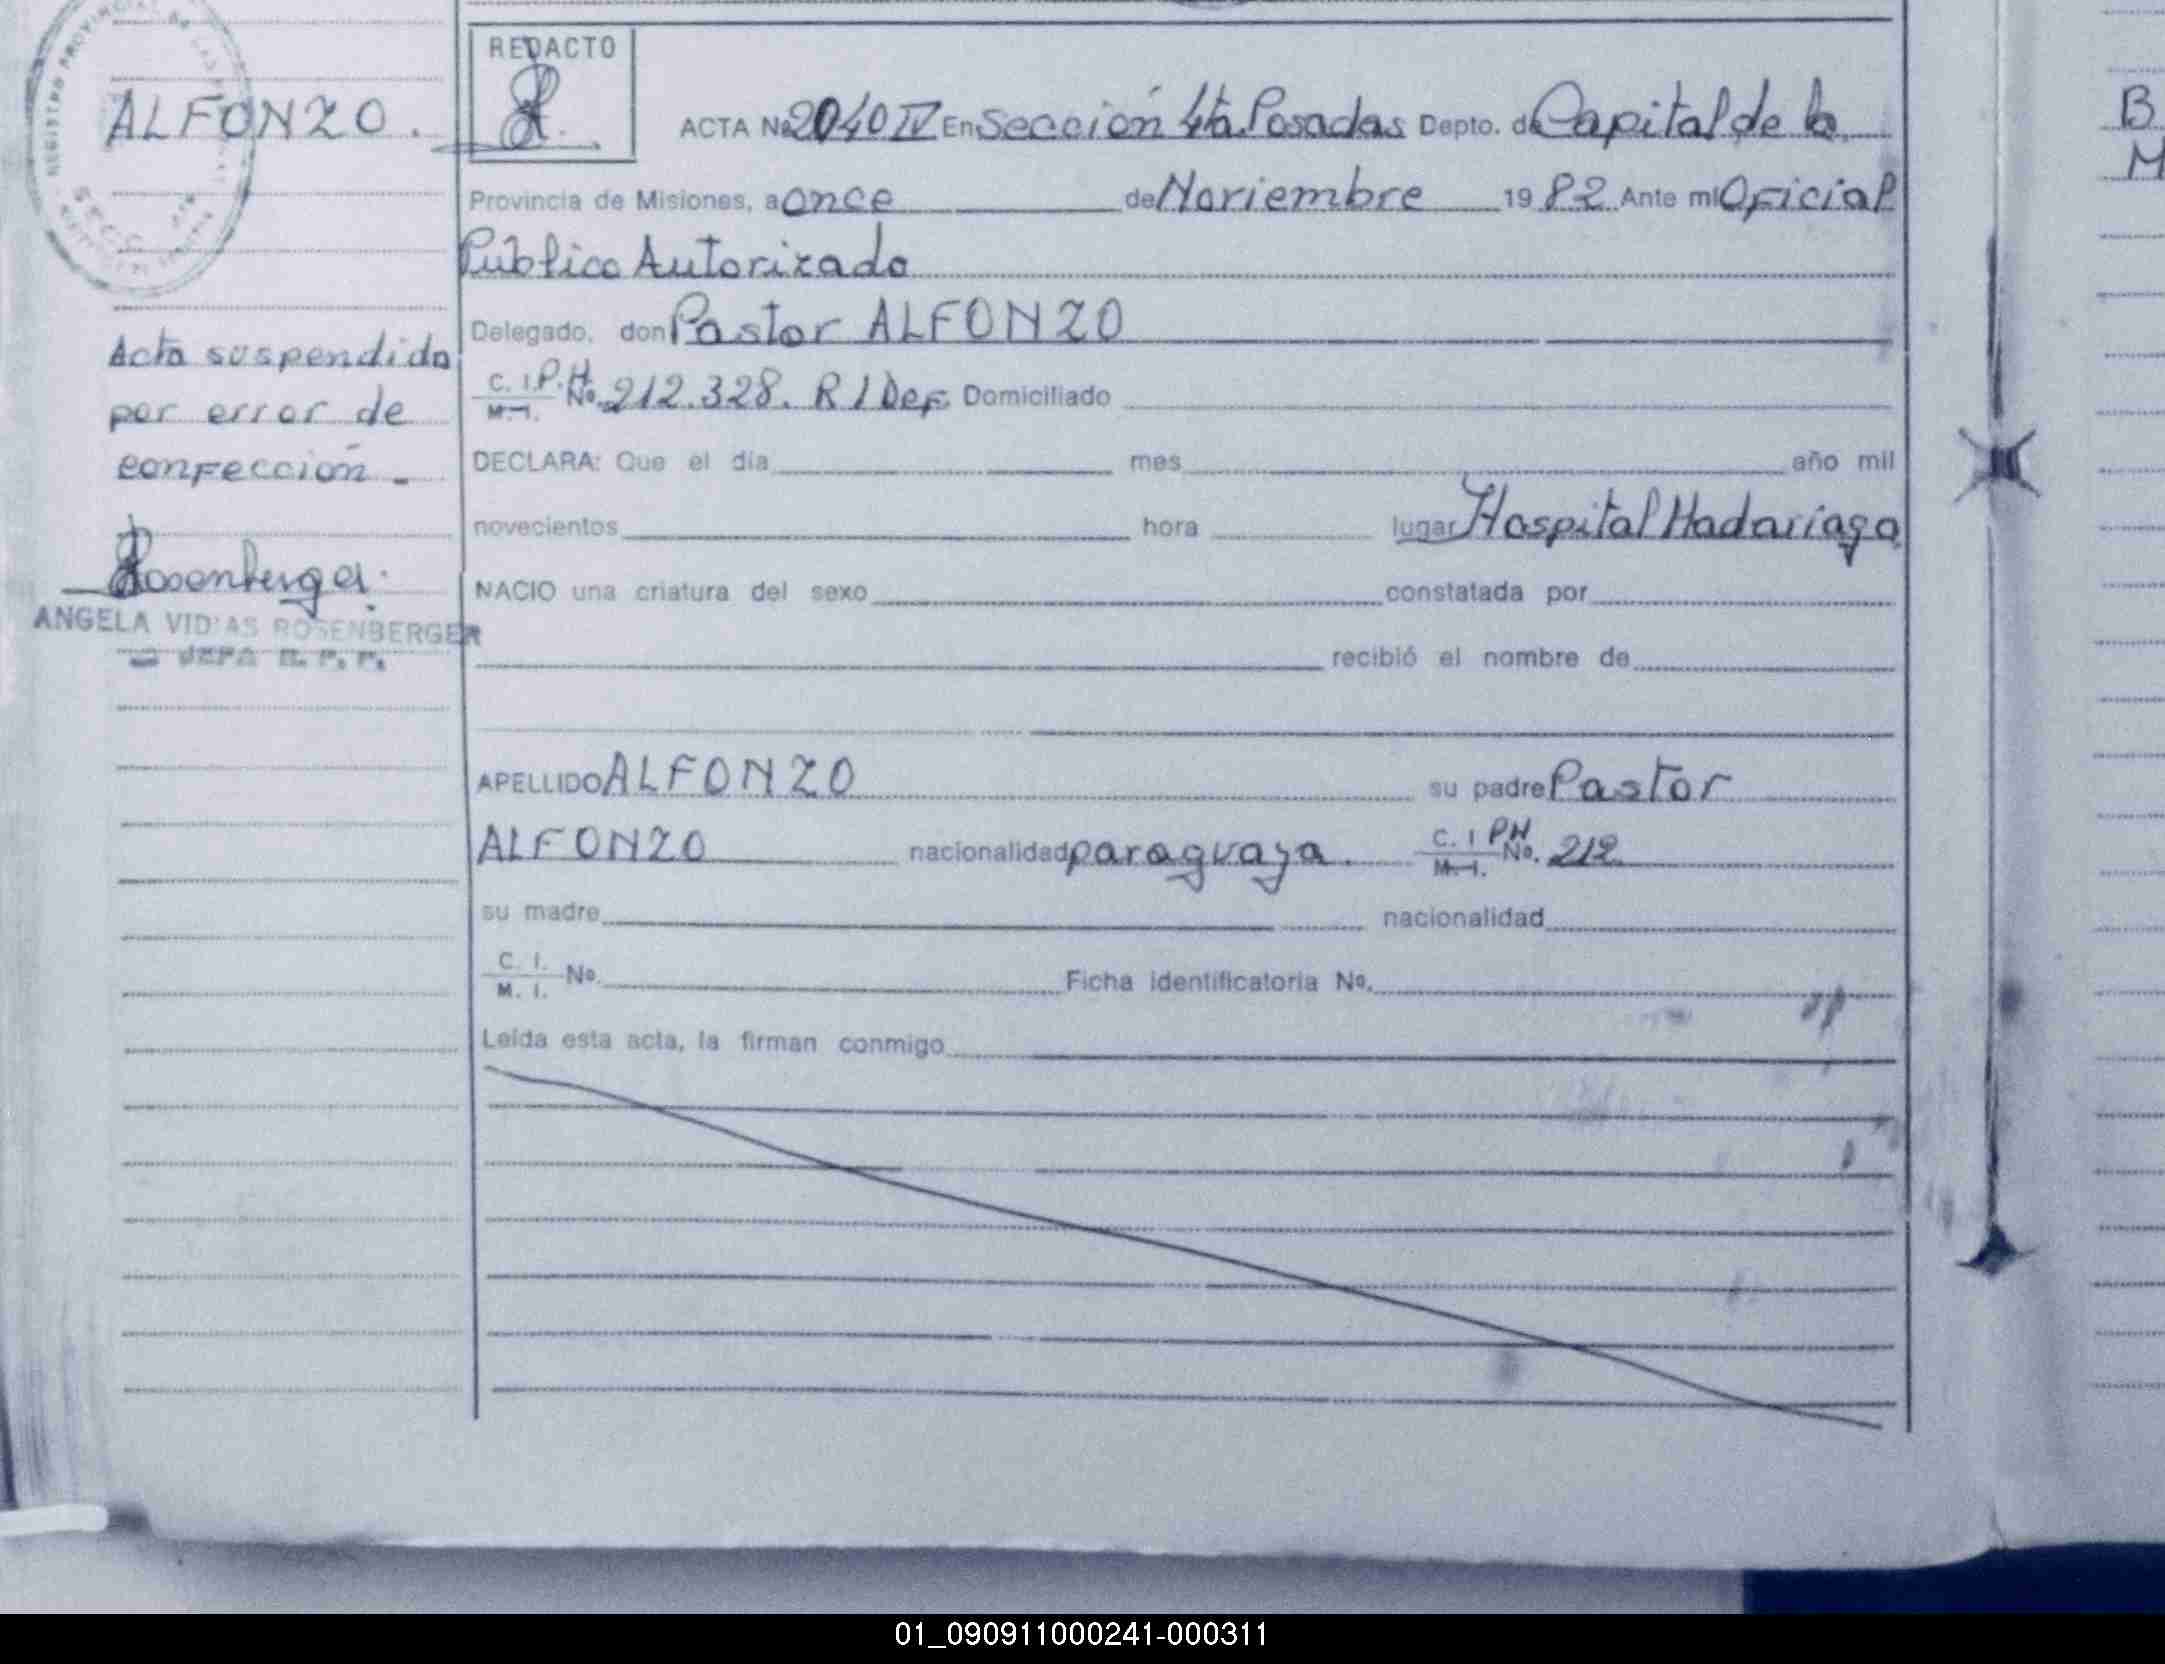 REDACTO
ALFONZO.
ACTA No 2040 IV En Sección 4ta. Posadas Depto. de Capital de la
Provincia de Misiones, a once de Noviembre 1982 Ante mí Oficial
Público Autorizado
Delegado, don Pastor ALFONZO
C. I. P.N. No. 212.328. R / Def. Domiciliado
M. I.
DECLARA: Que el día mes año mil
novecientos hora lugar Hospital Madariaga
NACIO una criatura del sexo constatada por
recibió el nombre de
APELLIDO ALFONZO su padre Pastor
ALFONZO nacionalidad paraguaya. C. I. PN No. 212
M. I.
su madre nacionalidad
C. I. No. Ficha identificatoria No.
M. I.
Leída esta acta, la firman conmigo
Acta suspendida
por error de
confección.
Rosenberger.
ANGELA VIDIAS ROSENBERGER
JEFA R. P. P.
B
M
01_090911000241-000311